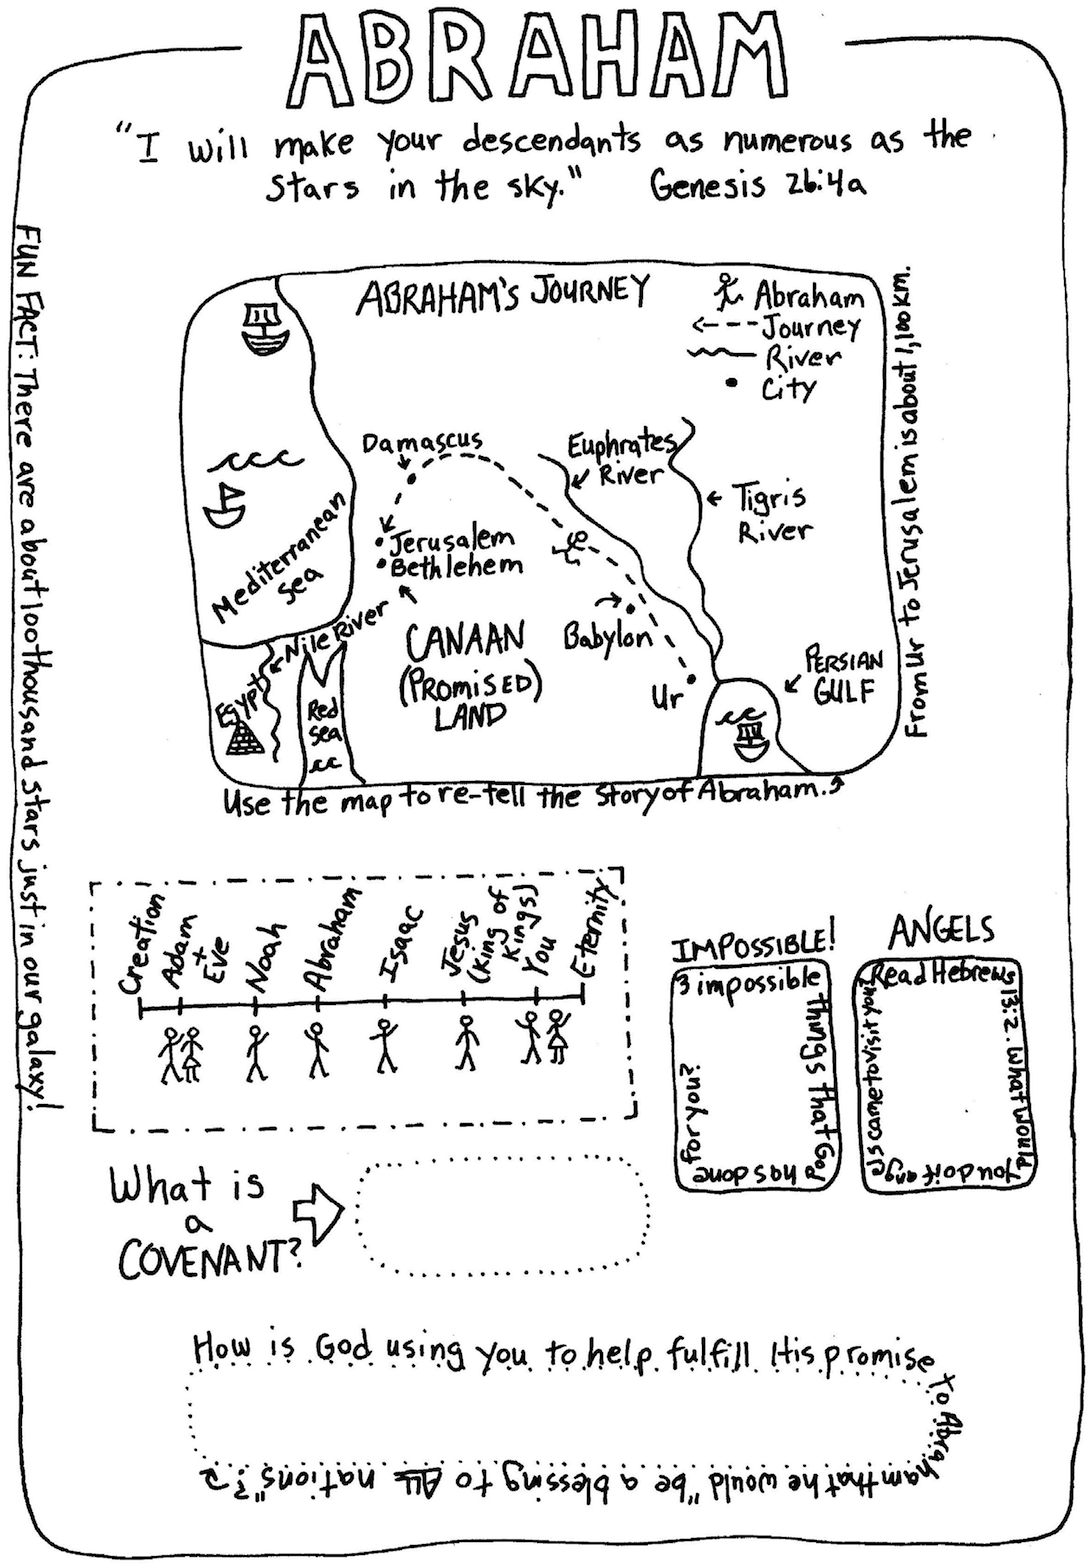 ABRAHAM
"I will make your descendants as numerous as the
stars in the sky." Genesis 26:4a
FUN FACT: There are about 100 thousand stars just in our galaxy!
ABRAHAM'S JOURNEY
Abraham
Journey
River
City
From Ur to Jerusalem is about 1,100 km.
Damascus
Euphrates
River
Tigris
River
Jerusalem
Bethlehem
Mediterranean
Sea
Nile River
CANAAN
(PROMISED)
LAND
Babylon
Ur
PERSIAN
GULF
Egypt
Red
Sea
Use the map to re-tell the Story of Abraham.
Creation
Adam
+
Eve
Noah
Abraham
Isaac
Jesus
(King of
Kings)
You
Eternity
IMPOSSIBLE!
3 impossible
things that God
has done
for you?
ANGELS
Read Hebrews
13:2. What would
you do if ang
els came to visit you?
What is
a
COVENANT?
How is God using you to help fulfill His promise
to Abraham that he would "be a blessing to ALL nations"?